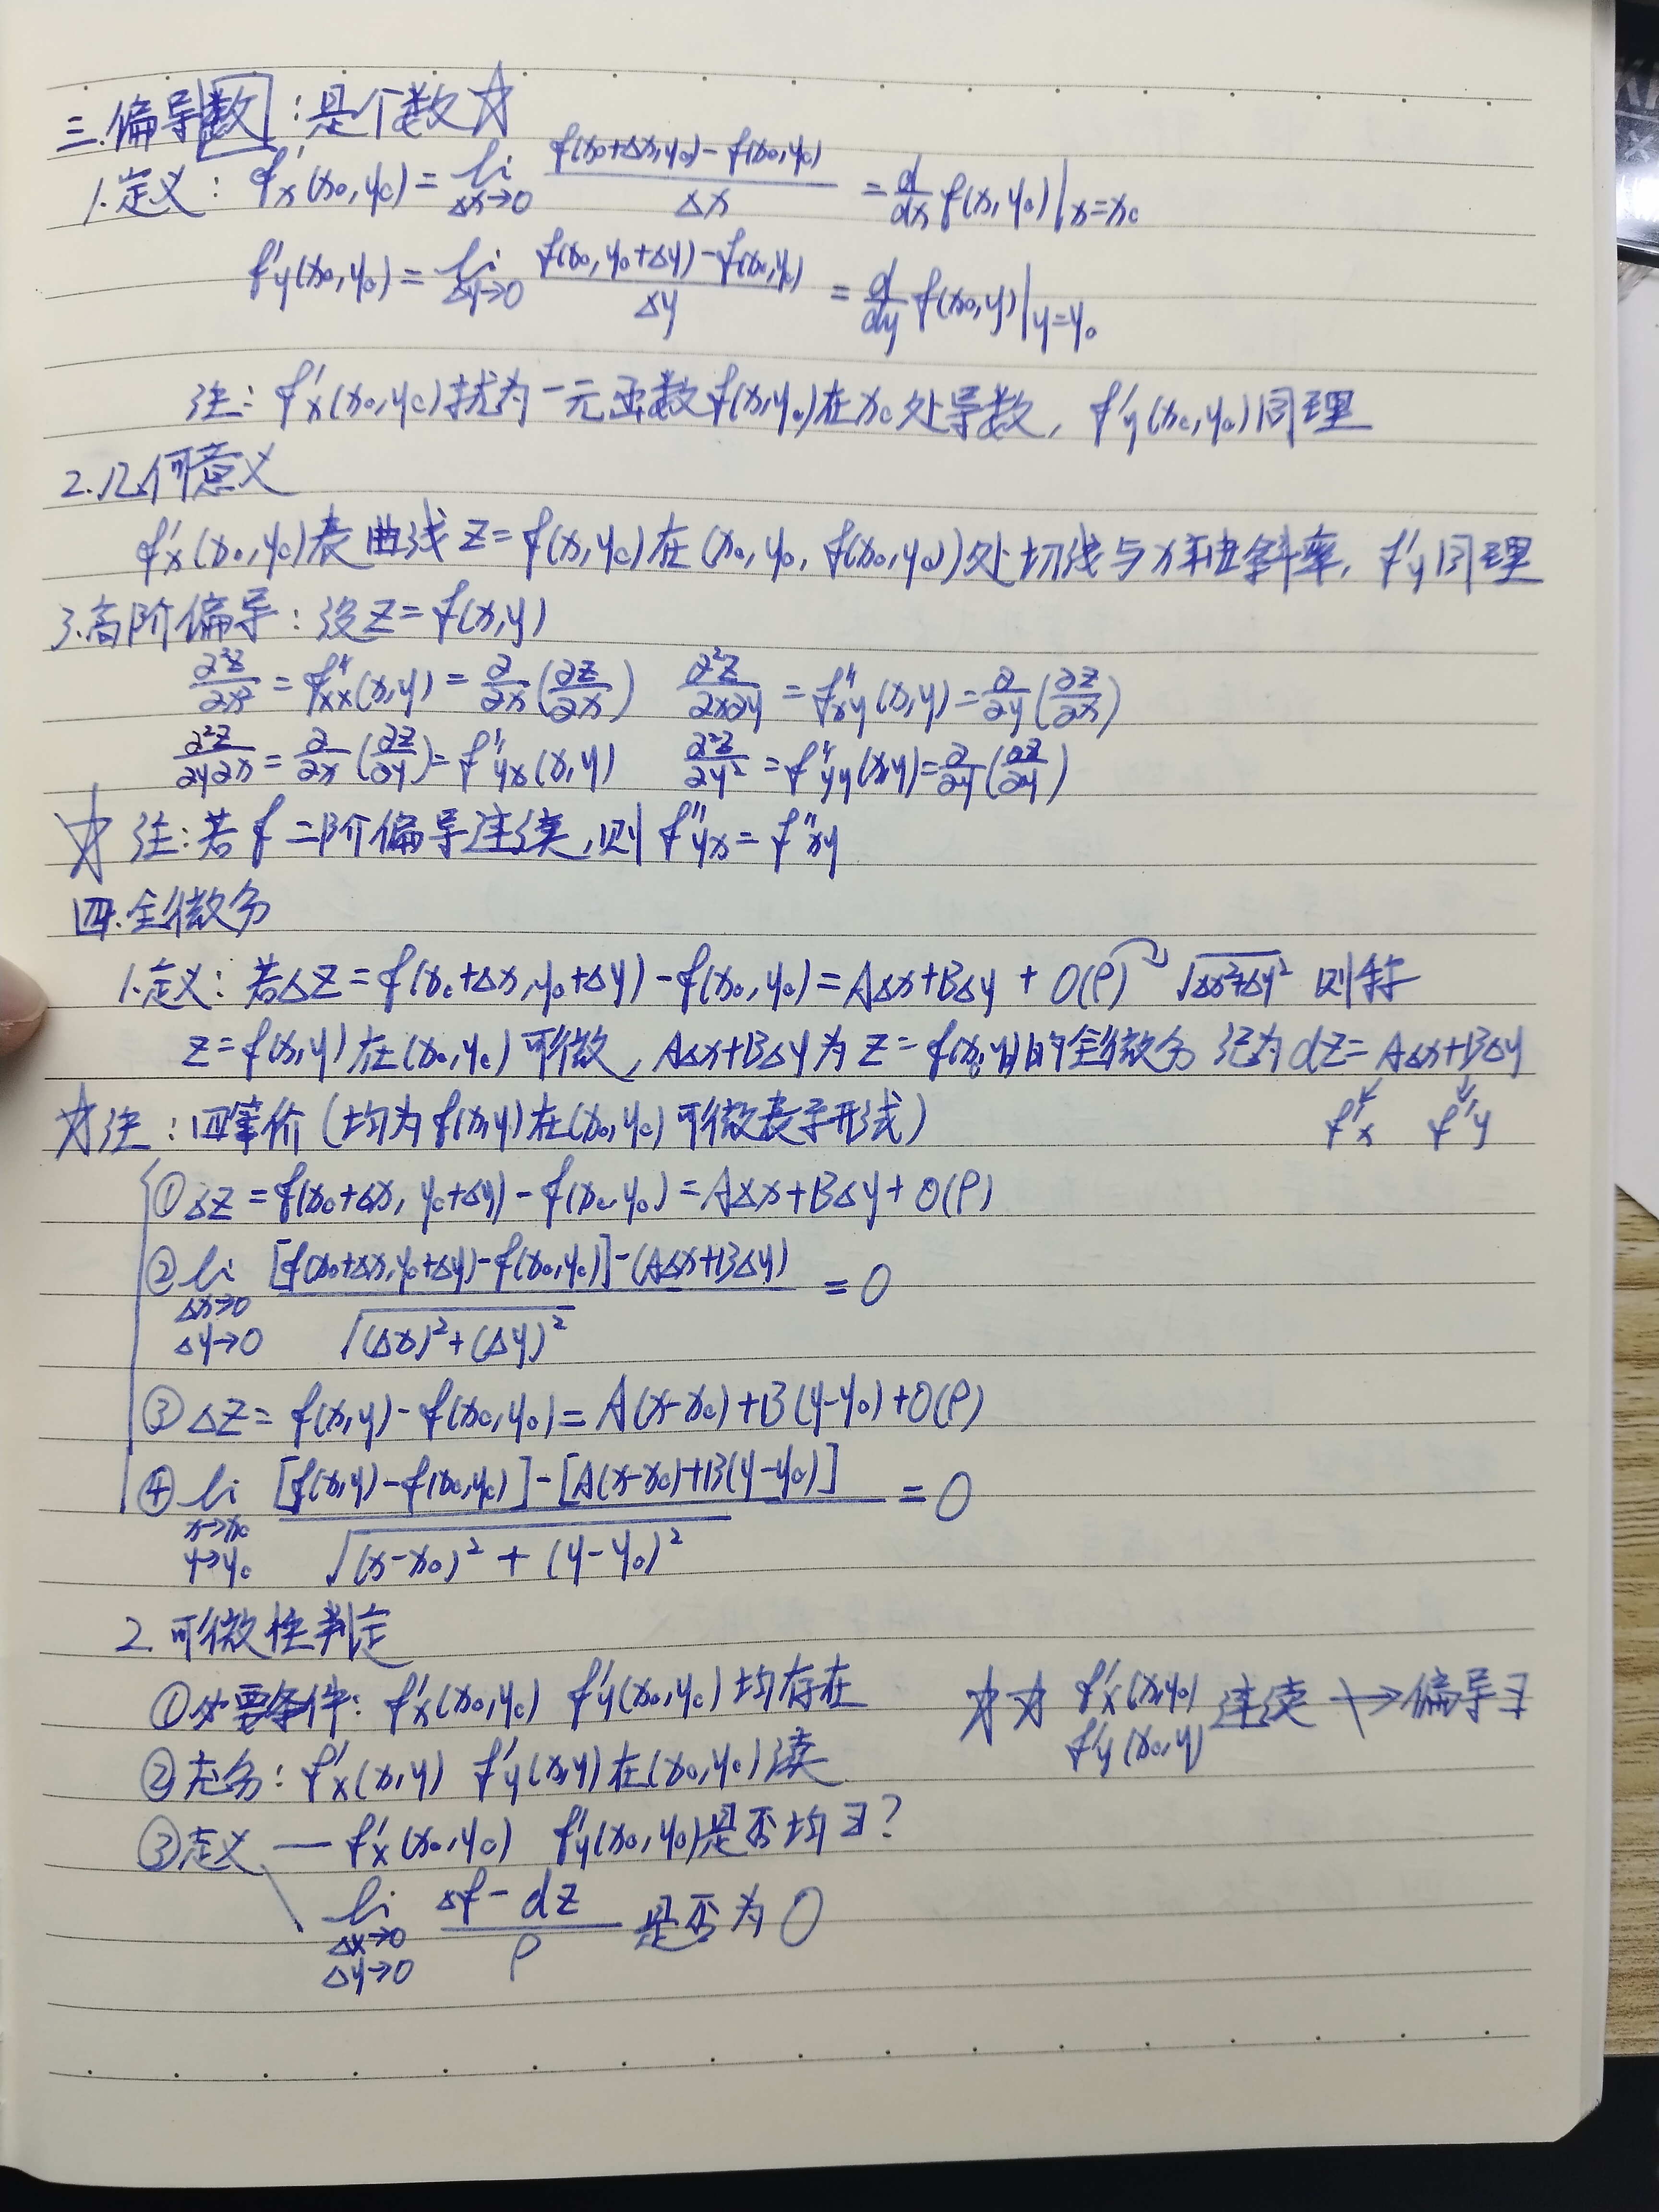 三.偏导数:是个数☆
1.定义: f'x(x0,y0)=lim Δx→0 (f(x0+Δx,y0)-f(x0,y0))/Δx = d/dx f(x,y0)|x=x0
f'y(x0,y0)=lim Δy→0 (f(x0,y0+Δy)-f(x0,y0))/Δy = d/dy f(x0,y)|y=y0
注: f'x(x0,y0)就为一元函数f(x,y0)在x0处导数, f'y(x0,y0)同理
2.几何意义
f'x(x0,y0)表曲线z=f(x,y0)在(x0,y0,f(x0,y0))处切线与x轴斜率, f'y同理
3.高阶偏导: 设z=f(x,y)
∂²z/∂x²=f''xx(x,y)=∂/∂x(∂z/∂x) ∂²z/∂x∂y=f''xy(x,y)=∂/∂y(∂z/∂x)
∂²z/∂y∂x=∂/∂x(∂z/∂y)=f''yx(x,y) ∂²z/∂y²=f''yy(x,y)=∂/∂y(∂z/∂y)
☆注:若f二阶偏导连续,则f''yx=f''xy
四.全微分
1.定义: 若Δz=f(x0+Δx,y0+Δy)-f(x0,y0)=AΔx+BΔy+o(ρ) √Δx²+Δy² 则称
z=f(x,y)在(x0,y0)可微, AΔx+BΔy为z=f(x,y)的全微分 记为dz=AΔx+BΔy
f'x f'y
☆注:四等价(均为f(x,y)在(x0,y0)可微表示形式)
①Δz=f(x0+Δx,y0+Δy)-f(x0,y0)=AΔx+BΔy+o(ρ)
②lim Δx→0 Δy→0 ([f(x0+Δx,y0+Δy)-f(x0,y0)]-(AΔx+BΔy))/√((Δx)²+(Δy)²)=0
③Δz=f(x,y)-f(x0,y0)=A(x-x0)+B(y-y0)+o(ρ)
④lim x→x0 y→y0 ([f(x,y)-f(x0,y0)]-[A(x-x0)+B(y-y0)])/√((x-x0)²+(y-y0)²)=0
2.可微性判定
①必要条件: f'x(x0,y0) f'y(x0,y0)均存在 ☆☆ f'x(x,y0) f'y(x0,y) 连续 ↛ 偏导∃
②充分: f'x(x,y) f'y(x,y)在(x0,y0)连续
③定义 — f'x(x0,y0) f'y(x0,y0)是否均∃?
lim Δx→0 Δy→0 (Δf-dz)/ρ 是否为0